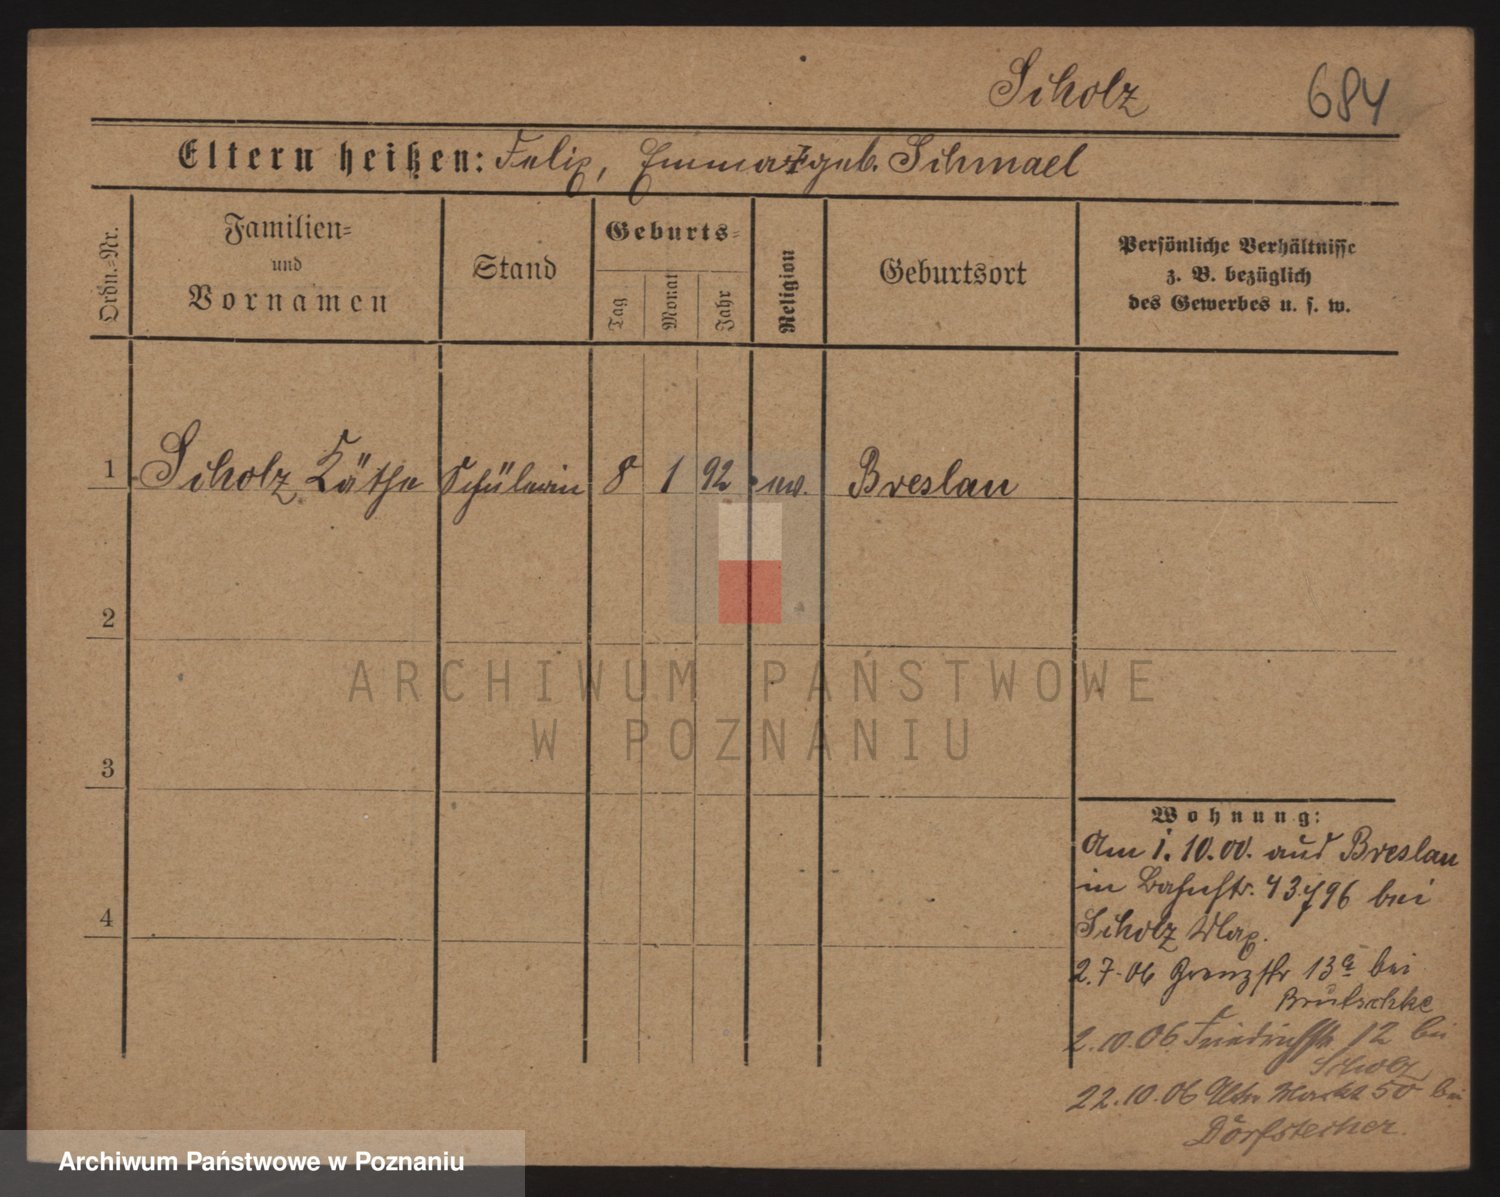 Scholz 684
Eltern heißen: Felix, Emma geb. Schmael
Ordn.-Nr.
Familien-
und
Vornamen
Stand
Geburts-
Tag
Monat
Jahr
Religion
Geburtsort
Persönliche Verhältnisse
z. B. bezüglich
des Gewerbes u. s. w.
1 Scholz Käthe Schülerin 8 1 92 ev. Breslau
2
3
4
Wohnung:
Am 1.10.00. aus Breslau
in Bahnstr. bei
Scholz Max.
2.7.06 Grenzstr 13a bei
Brutschke
2.10.06 Friedrichstr 12 bei
Scholz
22.10.06 Alter Markt 50 bei
Dörfstecher.
ARCHIWUM PAŃSTWOWE
W POZNANIU
Archiwum Państwowe w Poznaniu